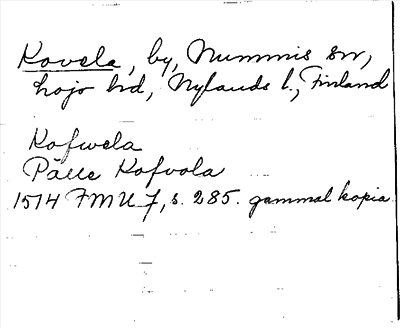 Kovela, by, Nummis sn,
Lojo hd, Nylands l., Finland
Kofwela
Pälle Kofvola
1514 FMU 7, s. 285. gammal kopia